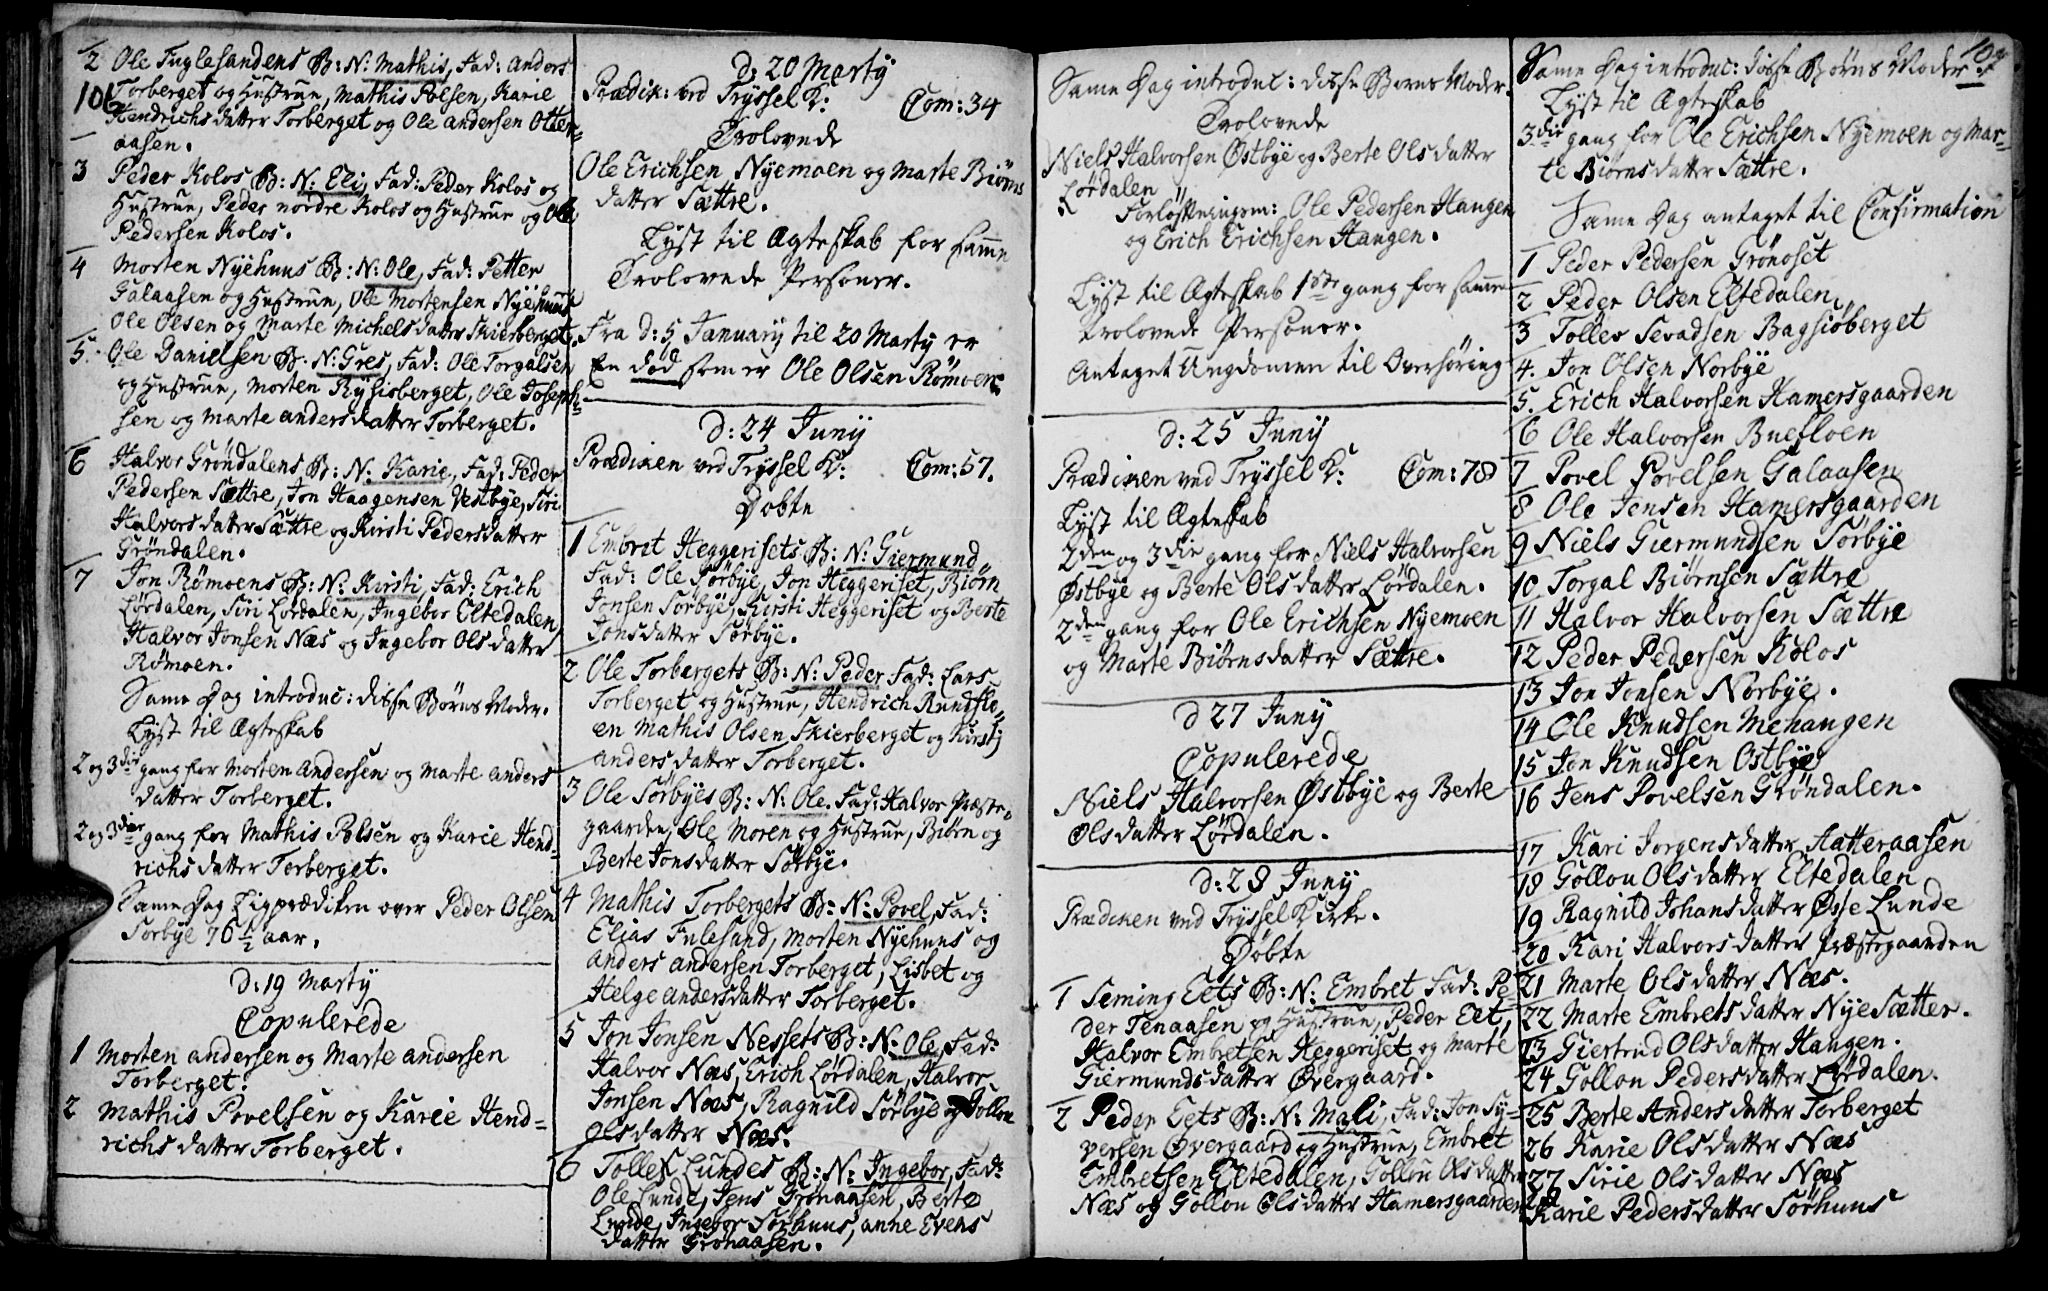 106
2 Ole Fuglesandens B: N: Mathis, Fad: Anders
Torberget og Hustrue, Mathis Polsen, Karie
Hendrichsdatter Torberget og Ole Andersen Otter=
aasen.
3 Peder Kolos B: N: Eli, Fad: Peder Kolos og
Hustrue, Peder nordre Kolos og Hustrue og Ole
Pedersen Kolos.
4 Morten Nyehuus B: N: Ole, Fad: Petter
Galaasen og Hustrue, Ole Mortensen Nyehuus
Ole Olsen og Marte Michelsdatter Skierberget.
5. Ole Danielsen B: N: Gres, Fad: Ole Torgalsen
og Hustrue, Morten Rysioberget, Ole Joseph=
sen og Marte Andersdatter Torberget.
6 Halvor Gröndalens B: N: Karie, Fad: Peder
Pedersen Sættre, Jon Haagensen Vestbye, Siri
Halvorsdatter Sættre og Kirsti Pedersdatter
Gröndalen.
7 Jon Römoens B: N: Kirsti, Fad: Erich
Lördalen, Siri Lördalen, Ingebor Eltedalen
Halvor Jonsen Næs og Ingebor Olsdatter
Römoen.
Same Dag introduc: disse Børns Moder.
Lyst til Ægteskab
2 og 3die gang for Morten Andersen og Marte Anders
datter Torberget.
2 og 3die gang for Mathis Polsen og Karie Hend=
richsdatter Torberget.
Same Dag Ligprædiken over Peder Olsen
Sörbye 76 1/2 aar.
D: 19 Marty
Copulerede
1 Morten Andersen og Marte Andersen
Torberget.
2 Mathis Povelsen og Karie Hend=
richsdatter Torberget.
D: 20 Marty
Prædik: ved Tryssel K: Com: 34
Trolovede
Ole Erichsen Nyemoen og Marte Biörns
datter Sættre.
Lyst til Ægteskab for samme
Trolovede Personer.
Fra D: 5 January til 20 Marty er
En död som er Ole Olsen Römoen.
D: 24 Juny
Prædiken ved Tryssel K: Com: 57.
Döbte
1 Embret Heggerisets B: N: Giermund
Fad: Ole Sörbye, Jon Heggeriset, Biörn
Jonsen Sörbye, Kirsti Heggeriset og Berte
Jonsdatter Sörbye.
2 Ole Torbergets B: N: Peder Fad: Lars
Torberget og Hustrue, Hendrich Rundflo=
en Mathis Olsen Skierberget og Kirsti
Andersdatter Torberget.
3 Ole Sörbyes B: N: Ole. Fad: Halvor Præste=
gaarden, Ole Moren og Hustrue, Biörn og
Berte Jonsdatter Sörbye.
4 Mathis Torbergets B: N: Povel, Fad:
Elias Fulesand, Morten Nyehuus og
Anders Andersen Torberget, Lisbet og
Helge Andersdatter Torberget.
5 Jon Jonsen Nessets B: N: Ole, Fad:
Halvor Næs, Erich Lördalen, Halvor
Jonsen Næs, Ragnild Sörbye og Gollou
Olsdatter Næs.
6 Tolles Lundes B: N: Ingebor, Fad:
Ole Lunde, Jens Grönaasen, Berte
Lunde, Ingebor Sörhuus, Anne Evens
datter Grönaasen.
107
Same Dag introduc: disse Børns Moder.
Trolovede
Niels Halvorsen Östbye og Berte Olsdatter
Lördalen
Forlöftningsm: Ole Pedersen Haugen
og Erich Erichsen Haugen.
Lyst til Ægteskab 1ste gang for samme
trolovede Personer.
Antaget Ungdommen til Overhöring
D: 25 Juny
Prædiken ved Tryssel K: Com: 78
Lyst til Ægteskab
2den og 3die gang for Niels Halvorsen
Östbye og Berte Olsdatter Lördalen.
2den gang for Ole Erichsen Nyemoen
og Marte Biörnsdatter Sættre.
D 27 Juny
Copulerede
Niels Halvorsen Östbye og Berte
Olsdatter Lördalen.
D: 28 Juny
Prædiken ved Tryssel Kirke.
Döbte
1 Seming Eets B: N: Embret Fad: Pe=
der Tenaasen og Hustrue, Peder Eet,
Halvor Embretsen Heggeriset og Marte
Giermundsdatter Övergaard.
2 Peder Eets B: N: Mali, Fad: Jon Sy=
versen Övergaard og Hustrue, Embret
Embretsen Eltedalen, Gollou Olsdatter
Næs og Gollou Olsdatter Hamersgaarden
Same Dag introduc: disse Börns Moder
Lyst til Ægteskab
3die gang for Ole Erichsen Nyemoen og Mar=
te Biörnsdatter Sættre.
Same Dag antaget til Confirmation
1 Peder Pedersen Grönoset
2 Peder Olsen Eltedalen
3 Tollev Sevadsen Bagsiöberget
4. Jon Olsen Norbye
5. Erich Halvorsen Hamersgaarden
6 Ole Halvorsen Buefloen
7 Povel Povelsen Galaasen
8 Ole Jensen Hamersgaarden
9 Niels Giermundsen Sörbye
10 Torgal Biörnsen Sættre
11 Halvor Halvorsen Sættre
12 Peder Pedersen Kolos
13 Jon Jonsen Norbye.
14 Ole Knudsen Mehaugen
15 Jon Knudsen Östbye
16 Jens Povelsen Gröndalen.
17 Kari Jorgensdatter Hatteraasen
18 Gollou Olsdatter Eltedalen
19 Ragnild Johansdatter Össe Lunde
20 Kari Halvorsdatter Præstegaarden
21 Marte Olsdatter Næs.
22 Marte Embretsdatter NyeSætter.
23 Giertrud Olsdatter Haugen.
24 Gollou Pedersdatter Lördalen.
25 Berte Andersdatter Torberget
26 Karie Olsdatter Næs
27 Sirie Olsdatter Næs
28 Karie Pedersdatter Sörhuus